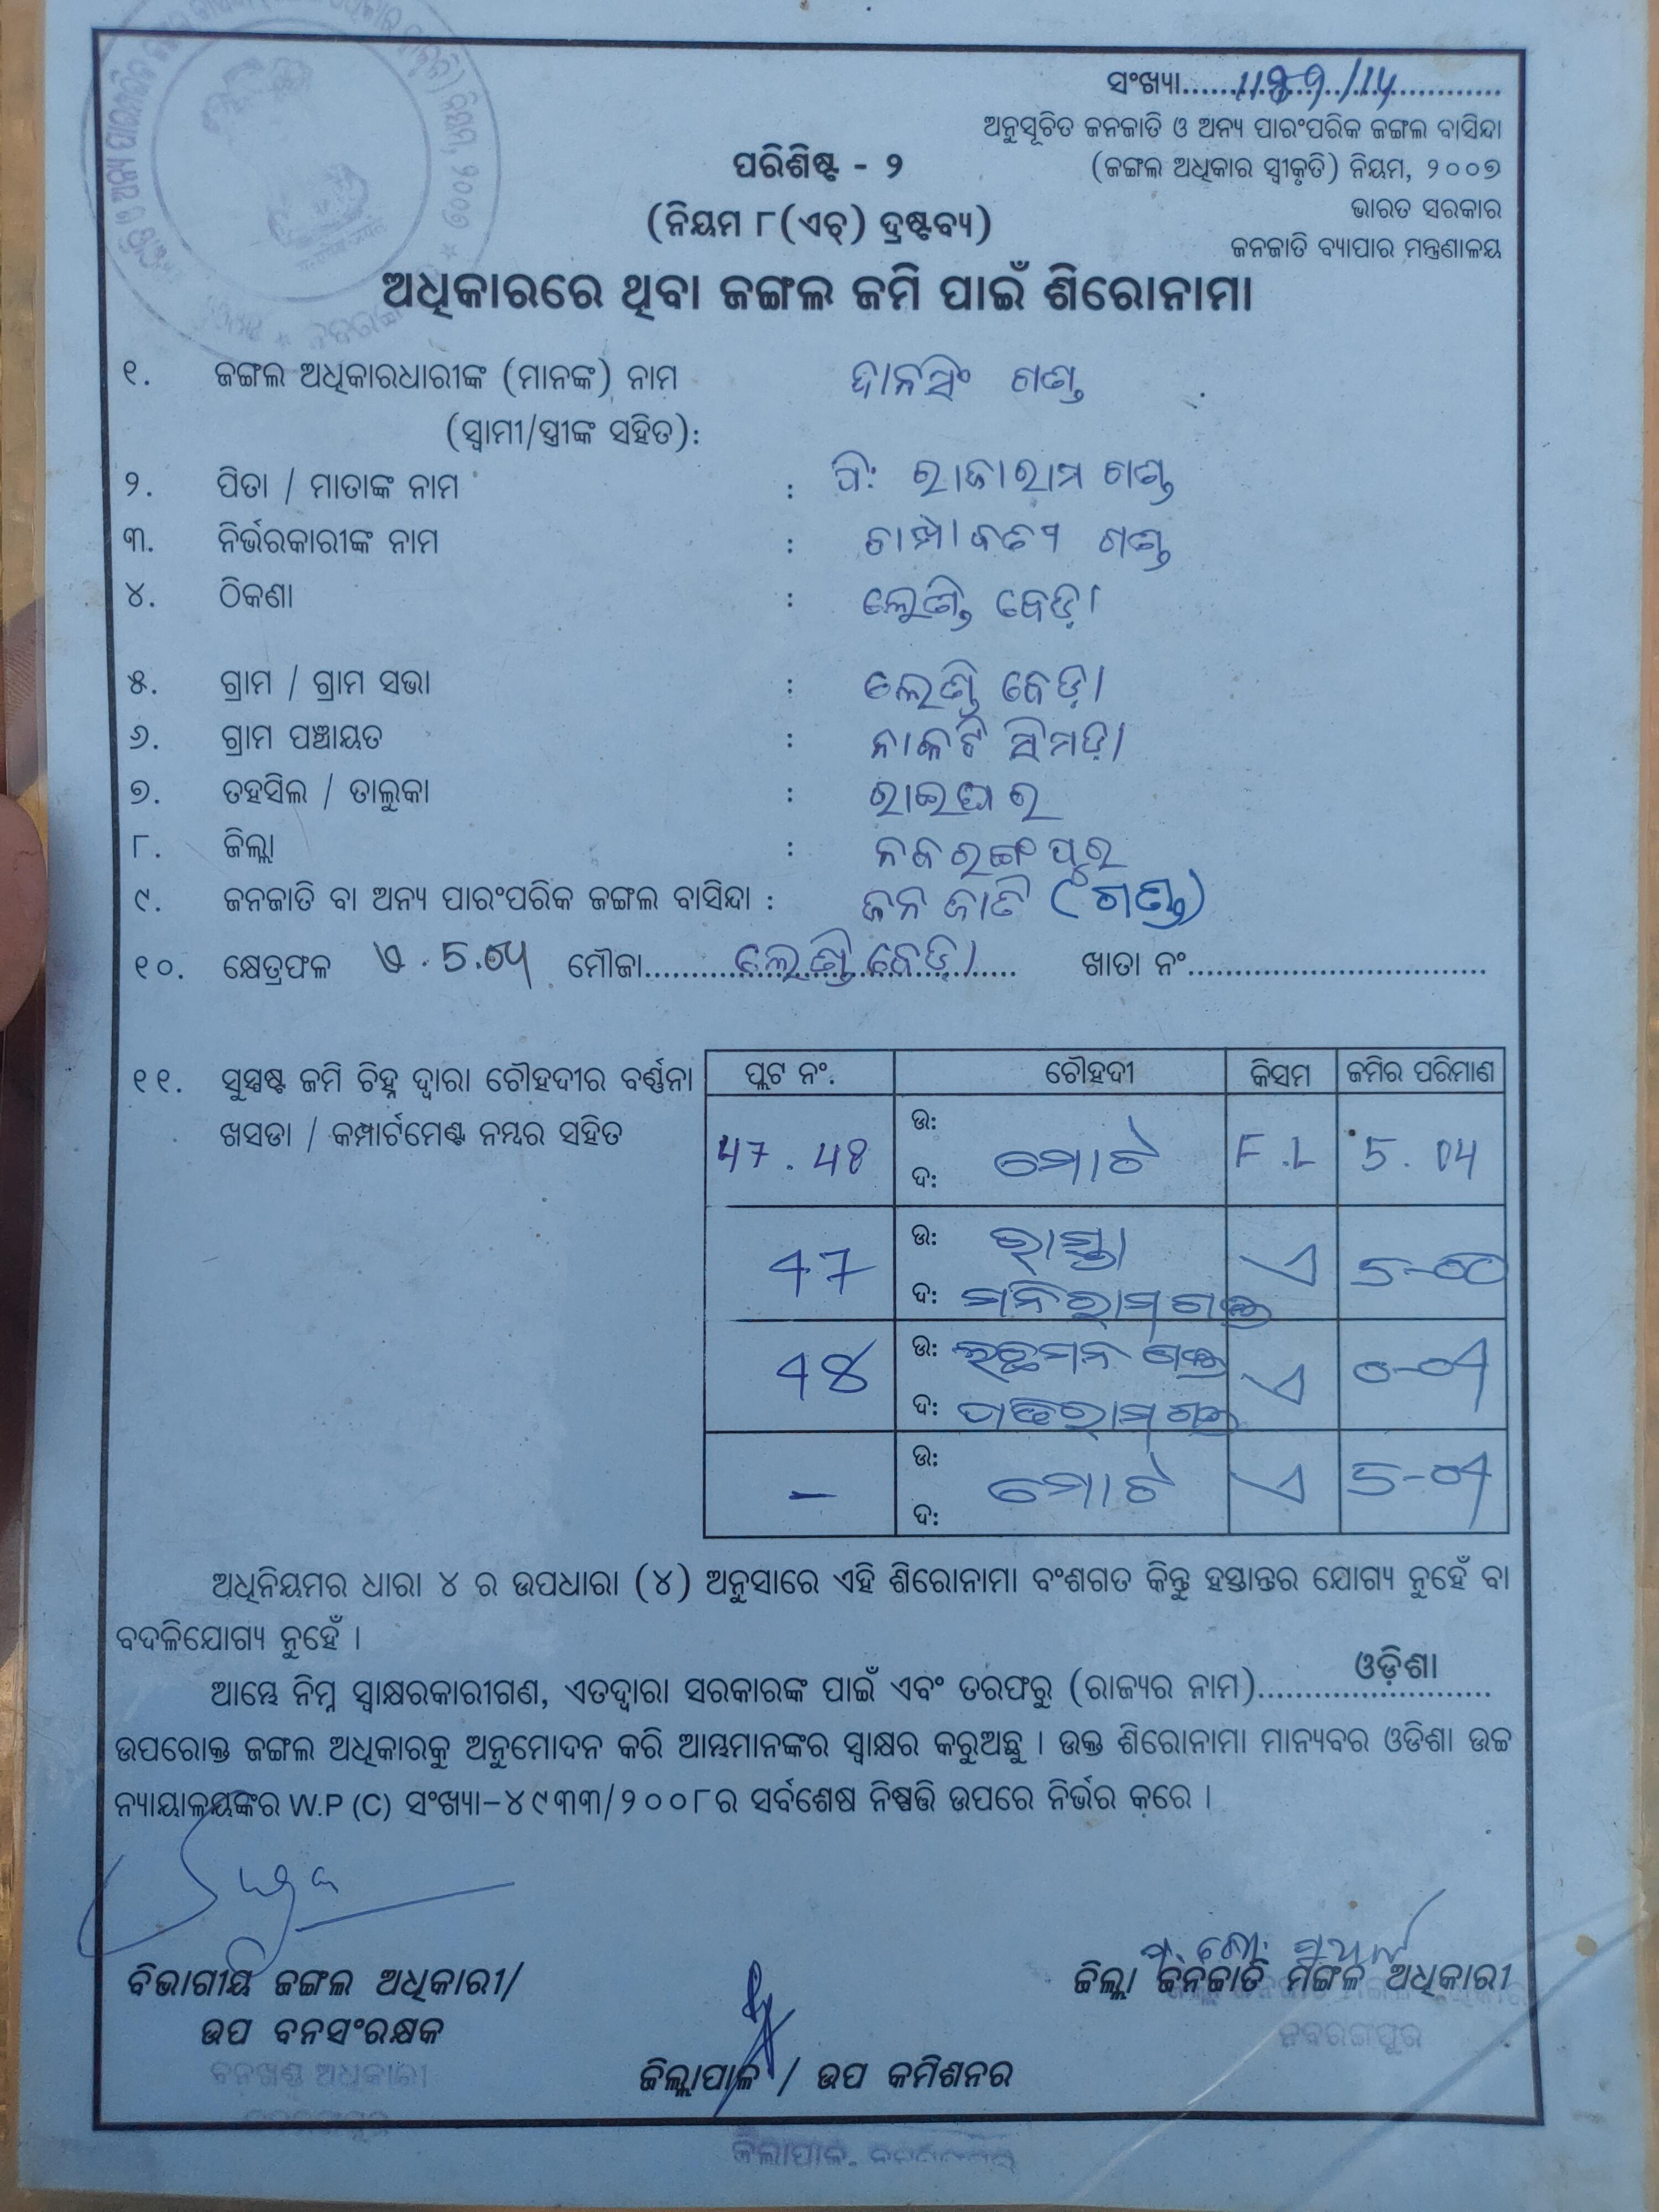 ସଂଖ୍ୟା................................
ଅନୁସୂଚିତ ଜନଜାତି ଓ ଅନ୍ୟ ପାରଂପରିକ ଜଙ୍ଗଲ ବାସିନ୍ଦା
(ଜଙ୍ଗଲ ଅଧିକାର ସ୍ୱୀକୃତି) ନିୟମ, ୨୦୦୭
ଭାରତ ସରକାର
ଜନଜାତି ବ୍ୟାପାର ମନ୍ତ୍ରଣାଳୟ
ପରିଶିଷ୍ଟ - ୨
(ନିୟମ ୮(ଏଚ୍) ଦ୍ରଷ୍ଟବ୍ୟ)
ଅଧିକାରରେ ଥିବା ଜଙ୍ଗଲ ଜମି ପାଇଁ ଶିରୋନାମା
୧. ଜଙ୍ଗଲ ଅଧିକାରଧାରୀଙ୍କ (ମାନଙ୍କ) ନାମ ଦାନସିଂ ଗଣ୍ଡ
(ସ୍ୱାମୀ/ସ୍ତ୍ରୀଙ୍କ ସହିତ):
୨. ପିତା / ମାତାଙ୍କ ନାମ : ପି: ରାଜାରାମ ଗଣ୍ଡ
୩. ନିର୍ଭରକାରୀଙ୍କ ନାମ : ଗଣ୍ଡ
୪. ଠିକଣା : ଲେଣ୍ଡି ବେଡ଼ା
୫. ଗ୍ରାମ / ଗ୍ରାମ ସଭା : ଲେଣ୍ଡି ବେଡ଼ା
୬. ଗ୍ରାମ ପଞ୍ଚାୟତ : ନାକଟି ସିମଡ଼ା
୭. ତହସିଲ / ତାଲୁକା : ରାଇଘର
୮. ଜିଲ୍ଲା : ନବରଙ୍ଗପୁର
୯. ଜନଜାତି ବା ଅନ୍ୟ ପାରଂପରିକ ଜଙ୍ଗଲ ବାସିନ୍ଦା : ଜନ ଜାତି (ଗଣ୍ଡ)
୧୦. କ୍ଷେତ୍ରଫଳ ଏ. 5.04 ମୌଜା....ଲେଣ୍ଡି ବେଡ଼ା.... ଖାତା ନଂ................................
୧୧. ସୁସ୍ପଷ୍ଟ ଜମି ଚିହ୍ନ ଦ୍ୱାରା ଚୌହଦୀର ବର୍ଣ୍ଣନା
ଖସଡା / କମ୍ପାର୍ଟମେଣ୍ଟ ନମ୍ବର ସହିତ
ପ୍ଲଟ ନଂ. ଚୌହଦୀ କିସମ ଜମିର ପରିମାଣ
47. 48 ଉ: ଦ: ମୋଟ F.L 5.04
47 ଉ: ରାସ୍ତା ଏ 5-00
ଦ: ମନିରାମ ଗଣ୍ଡ
48 ଉ: ଲଛମନ ଗଣ୍ଡ ଏ 0-04
ଦ: ଗଣ୍ଡ
- ଉ: ଦ: ମୋଟ ଏ 5-04
ଅଧିନିୟମର ଧାରା ୪ ର ଉପଧାରା (୪) ଅନୁସାରେ ଏହି ଶିରୋନାମା ବଂଶଗତ କିନ୍ତୁ ହସ୍ତାନ୍ତର ଯୋଗ୍ୟ ନୁହେଁ ବା
ବଦଳିଯୋଗ୍ୟ ନୁହେଁ ।
ଆମ୍ଭେ ନିମ୍ନ ସ୍ୱାକ୍ଷରକାରୀଗଣ, ଏତଦ୍ୱାରା ସରକାରଙ୍କ ପାଇଁ ଏବଂ ତରଫରୁ (ରାଜ୍ୟର ନାମ)....ଓଡ଼ିଶା....
ଉପରୋକ୍ତ ଜଙ୍ଗଲ ଅଧିକାରକୁ ଅନୁମୋଦନ କରି ଆମ୍ଭମାନଙ୍କର ସ୍ୱାକ୍ଷର କରୁଅଛୁ । ଉକ୍ତ ଶିରୋନାମା ମାନ୍ୟବର ଓଡିଶା ଉଚ୍ଚ
ନ୍ୟାୟାଳୟଙ୍କର W.P (C) ସଂଖ୍ୟା-୪୯୩୩/୨୦୦୮ର ସର୍ବଶେଷ ନିଷ୍ପତ୍ତି ଉପରେ ନିର୍ଭର କରେ ।
ବିଭାଗୀୟ ଜଙ୍ଗଲ ଅଧିକାରୀ/
ଉପ ବନସଂରକ୍ଷକ
ବନଖଣ୍ଡ ଅଧିକାରୀ
ଜିଲ୍ଲାପାଳ / ଉପ କମିଶନର
ଜିଲ୍ଲା ଜନଜାତି ମଙ୍ଗଳ ଅଧିକାରୀ
ନବରଙ୍ଗପୁର
ଜିଲାପାଳ.